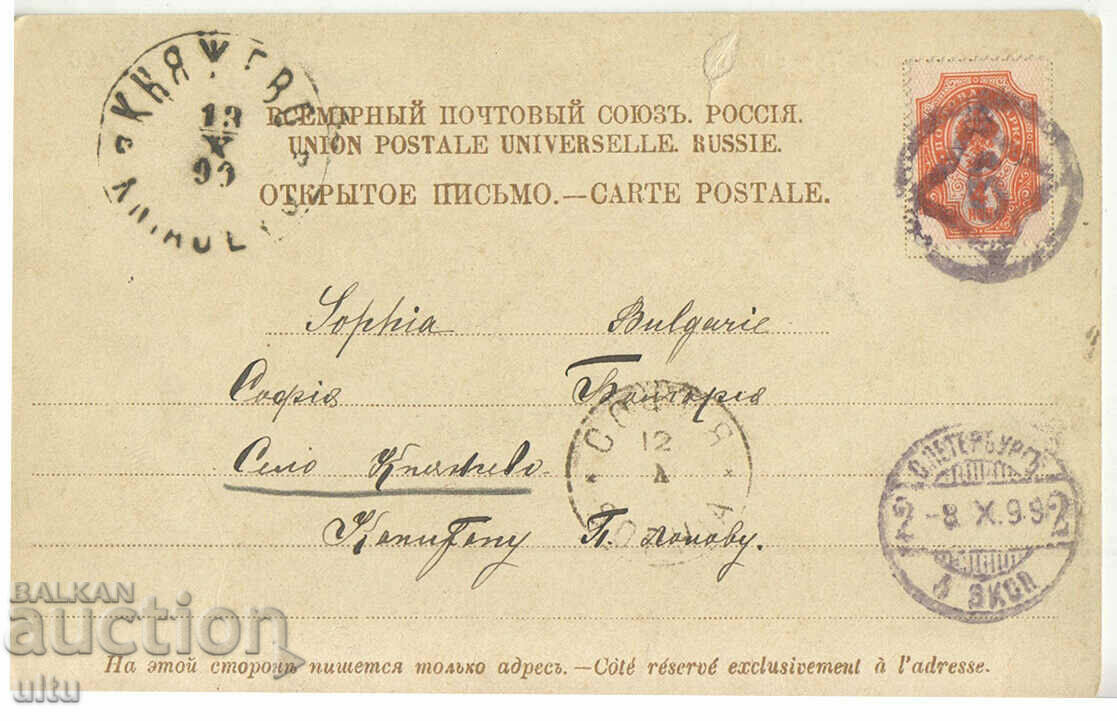 КНЯЖЕВО
13
X
99
ВСЕМІРНЫЙ ПОЧТОВЫЙ СОЮЗЪ. РОССІЯ.
UNION POSTALE UNIVERSELLE. RUSSIE.
ОТКРЫТОЕ ПИСЬМО.—CARTE POSTALE.
Sophia Bulgarie
Софія Болгорія
Село Княжево
Капитану П. Попову.
СОФИЯ
12
X
С.ПЕТЕРБУРГЪ
2 -8 X.99 2
ЭКСП
На этой сторонѣ пишется только адресъ.—Côté réservé exclusivement à l'adresse.
BALKAN
auction
ultu